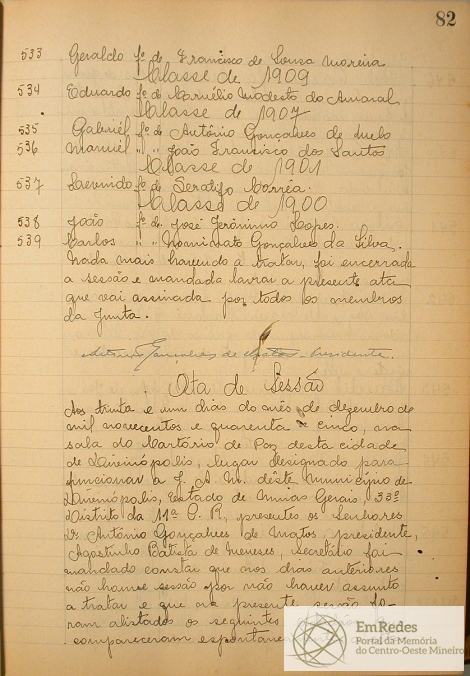 82
533 Geraldo fº de Francisco de Sousa Moreira
Classe de 1909
534 Eduardo fº de Cornélio Modesto do Amaral
Classe de 1907
535 Gabriel fº de Antônio Gonçalves de Melo
536 Manuel " " João Francisco dos Santos
Classe de 1901
537 fº de Corrêa.
Classe de 1900
538 João fº de José Jerônimo Lopes.
539 Carlos " " Nominato Gonçalves da Silva.
Nada mais havendo a tratar, foi encerrada
a sessão e mandada lavrar a presente ata
que vai assinada por todos os membros
da Junta.
Antônio Gonçalves de Matos - Presidente.
Ata de Sessão
Aos trinta e um dias do mês de dezembro de
mil novecentos e quarenta e cinco, na
sala do Cartório de Paz desta cidade
de Divinópolis, lugar designado para
funcionar a J. A. M. dêste Município de
Divinópolis, Estado de Minas Gerais, 33º
Distrito da 11ª C. R, presentes os Senhores
Dr Antônio Gonçalves de Matos, presidente,
Agostinho Batista de Meneses, Secretário foi
mandado constar que nos dias anteriores
não houve sessão por não haver assunto
a tratar e que na presente sessão fo-
ram alistados os seguintes
compareceram
EmRedes
Portal da Memória
do Centro-Oeste Mineiro